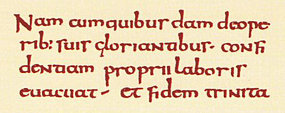 Nam cumquibus dam deope
rib: suis gloriantibus · confi
dentiam proprii laboris
euacuat – et fidem trinita